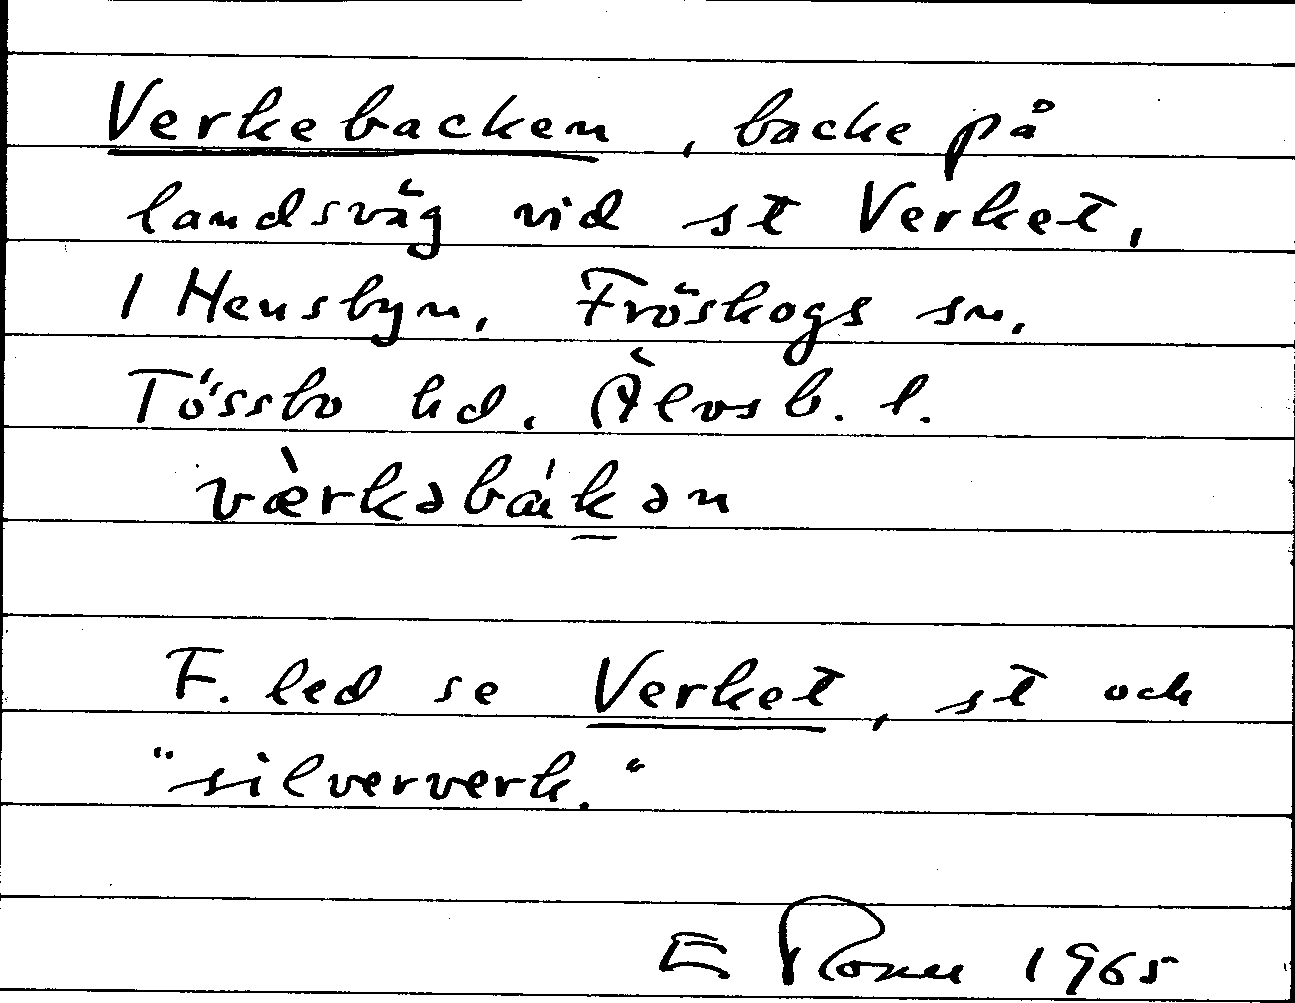 Verkebacken, backe på
landsväg vid st Verket,
1 Hensbyn, Fröskogs sn,
Tössbo hd, Älvsb. l.
vèrkəbákən
F. led se Verket, st och
"silververk."
E 1965